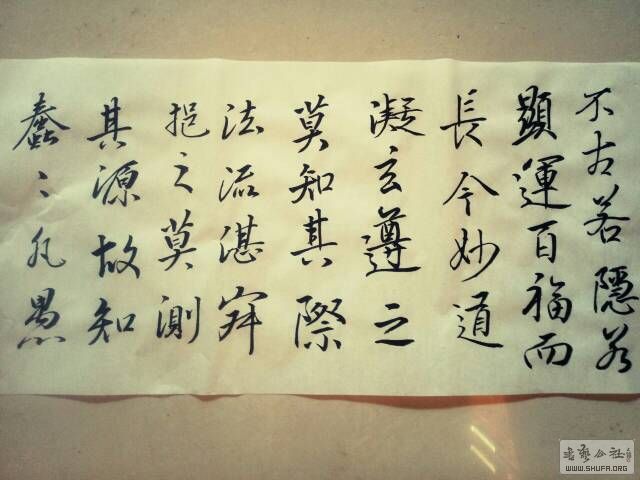 不古若隱若
顯運百福而
長今妙道
凝玄遵之
莫知其際
法流湛寂
挹之莫測
其源故知
蠢〻凡愚
書藝公社
WWW.SHUFA.ORG